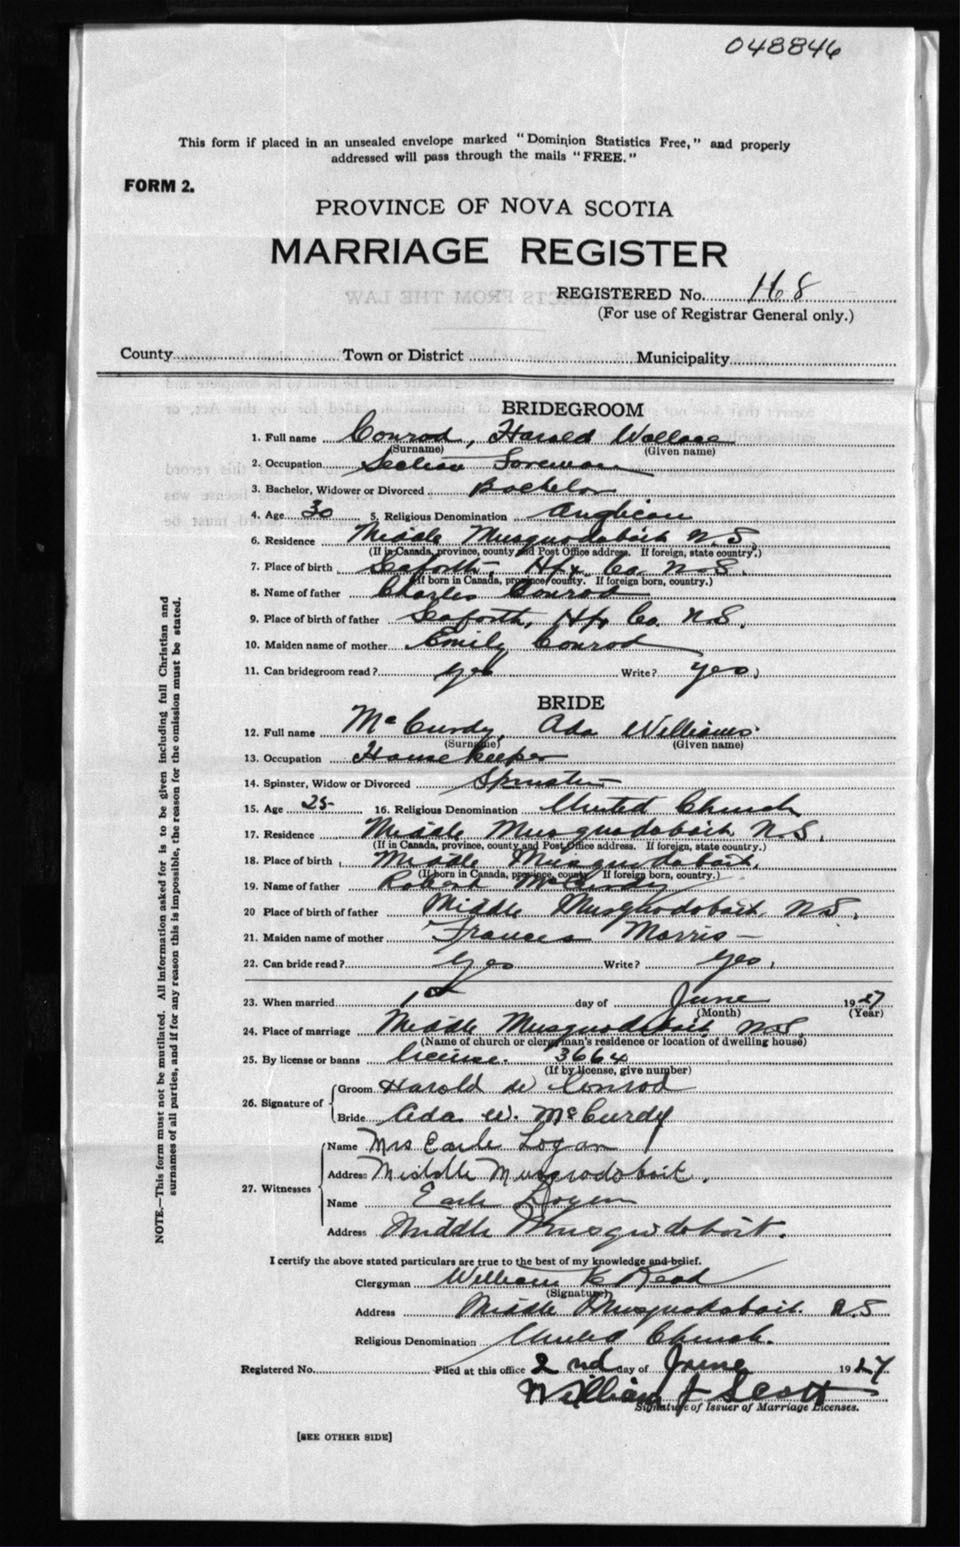 048846
This form if placed in an unsealed envelope marked "Dominion Statistics Free," and properly
addressed will pass through the mails "FREE."
FORM 2.
PROVINCE OF NOVA SCOTIA
MARRIAGE REGISTER
REGISTERED No. 168
(For use of Registrar General only.)
County Town or District Municipality
BRIDEGROOM
1. Full name Conrod, Harold Wallace
(Surname) (Given name)
2. Occupation Section Foreman
3. Bachelor, Widower or Divorced Bachelor
4. Age 30 5. Religious Denomination Anglican
6. Residence Middle Musquodoboit N.S.
(If in Canada, province, county and Post Office address. If foreign, state country.)
7. Place of birth Seaforth, Hfx Co. N.S.
(If born in Canada, province, county. If foreign born, country.)
8. Name of father Charles Conrod
9. Place of birth of father Seaforth, Hfx Co. N.S.
10. Maiden name of mother Emily Conrod
11. Can bridegroom read? yes Write? yes
BRIDE
12. Full name McCurdy, Ada Williams
(Surname) (Given name)
13. Occupation House Keeper
14. Spinster, Widow or Divorced Spinster
15. Age 25 16. Religious Denomination United Church
17. Residence Middle Musquodoboit, N.S.
(If in Canada, province, county and Post Office address. If foreign, state country.)
18. Place of birth Middle Musquodoboit.
(If born in Canada, province, county. If foreign born, country.)
19. Name of father Robert McCurdy
20 Place of birth of father Middle Musquodoboit, N.S.
21. Maiden name of mother Frances Morris
22. Can bride read? yes Write? yes.
23. When married 1st day of June 1927
(Month) (Year)
24. Place of marriage Middle Musquodoboit, N.S.
(Name of church or clergyman's residence or location of dwelling house)
25. By license or banns license. 3664
(If by license, give number)
26. Signature of
Groom Harold W Conrod
Bride Ada W. McCurdy
27. Witnesses
Name Mrs Earle Logan
Address Middle Musquodoboit.
Name Earle Logan
Address Middle Musquodoboit.
I certify the above stated particulars are true to the best of my knowledge and belief.
Clergyman William K Read
(Signature)
Address Middle Musquodoboit. N.S
Religious Denomination United Church.
Registered No. Filed at this office 2nd day of June 1927
William J Scott
Signature of Issuer of Marriage Licenses.
[SEE OTHER SIDE]
NOTE.—This form must not be mutilated. All information asked for is to be given including full Christian and
surnames of all parties, and if for any reason this is impossible, the reason for the omission must be stated.